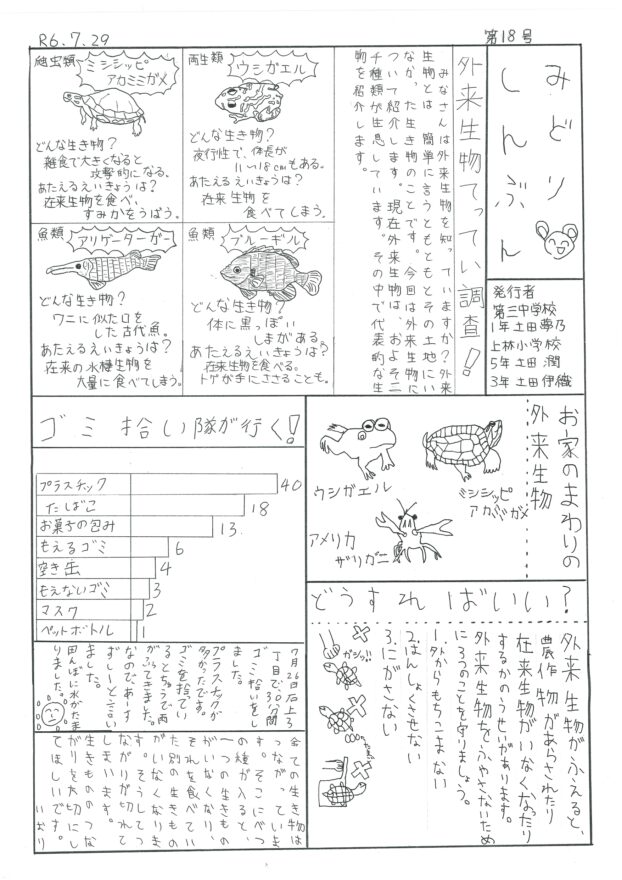 R6.7.29
第18号
みどり
しんぶん
発行者
第三中学校
1年 土田 夢乃
上林小学校
5年 土田 潤
3年 土田 伊織
外来生物てってい調査!
みなさんは外来生物を知っていますか?外来
生物とは、簡単に言うともともとその土地にい
なかった生き物のことです。今回は外来生物に
ついて紹介します。現在外来生物は、およそ二
千種類が生息しています。その中で代表的な生
物を紹介します。
両生類
ウシガエル
どんな生き物?
夜行性で、体長が
11〜18cmもある。
あたえるえいきょうは?
在来生物を
食べてしまう。
爬虫類
ミシシッピ
アカミミガメ
どんな生き物?
雑食で大きくなると
攻撃的になる。
あたえるえいきょうは?
在来生物を食べ、
すみかをうばう。
魚類
ブルーギル
どんな生き物?
体に黒っぽい
しまがある。
あたえるえいきょうは?
在来生物を食べる。
トゲが手にささることも。
魚類
アリゲーターガー
どんな生き物?
ワニに似た口を
した古代魚。
あたえるえいきょうは?
在来の水棲生物を
大量に食べてしまう。
お家のまわりの
外来生物
ウシガエル
ミシシッピ
アカミミガメ
アメリカ
ザリガニ
どうすればいい?
外来生物がふえると、
農作物があらされたり
在来生物がいなくなったり
するかのうせいがあります。
外来生物をふやさないため
に3つのことを守りましょう。
1.外からもちこまない
2.はんしょくさせない
3.にがさない
ガシッ!!
ゴミ拾い隊が行く!
プラスチック 40
たばこ 18
お菓子の包み 13
もえるゴミ 6
空き缶 4
もえないゴミ 3
マスク 2
ペットボトル 1
7月26日石上3
丁目で、30分間
ゴミ拾いをし
ました。
プラスチックが
多かったです。
ゴミを捨てい
るとちゅうで雨
がふってきました。
なのであーす
ずしーと言い
ました。
田んぼに水がたま
りました。
全ての生き物は
つながっていま
す。そこにべつ
の種が入ると、
一つの生きもの
がいなくなり、
それを食べてい
た別の生きもの
がいなくなりま
す。そうしてつ
ながりが切れて
しまいます。
生きもののつな
がりを大切にし
てほしいです。
いおり